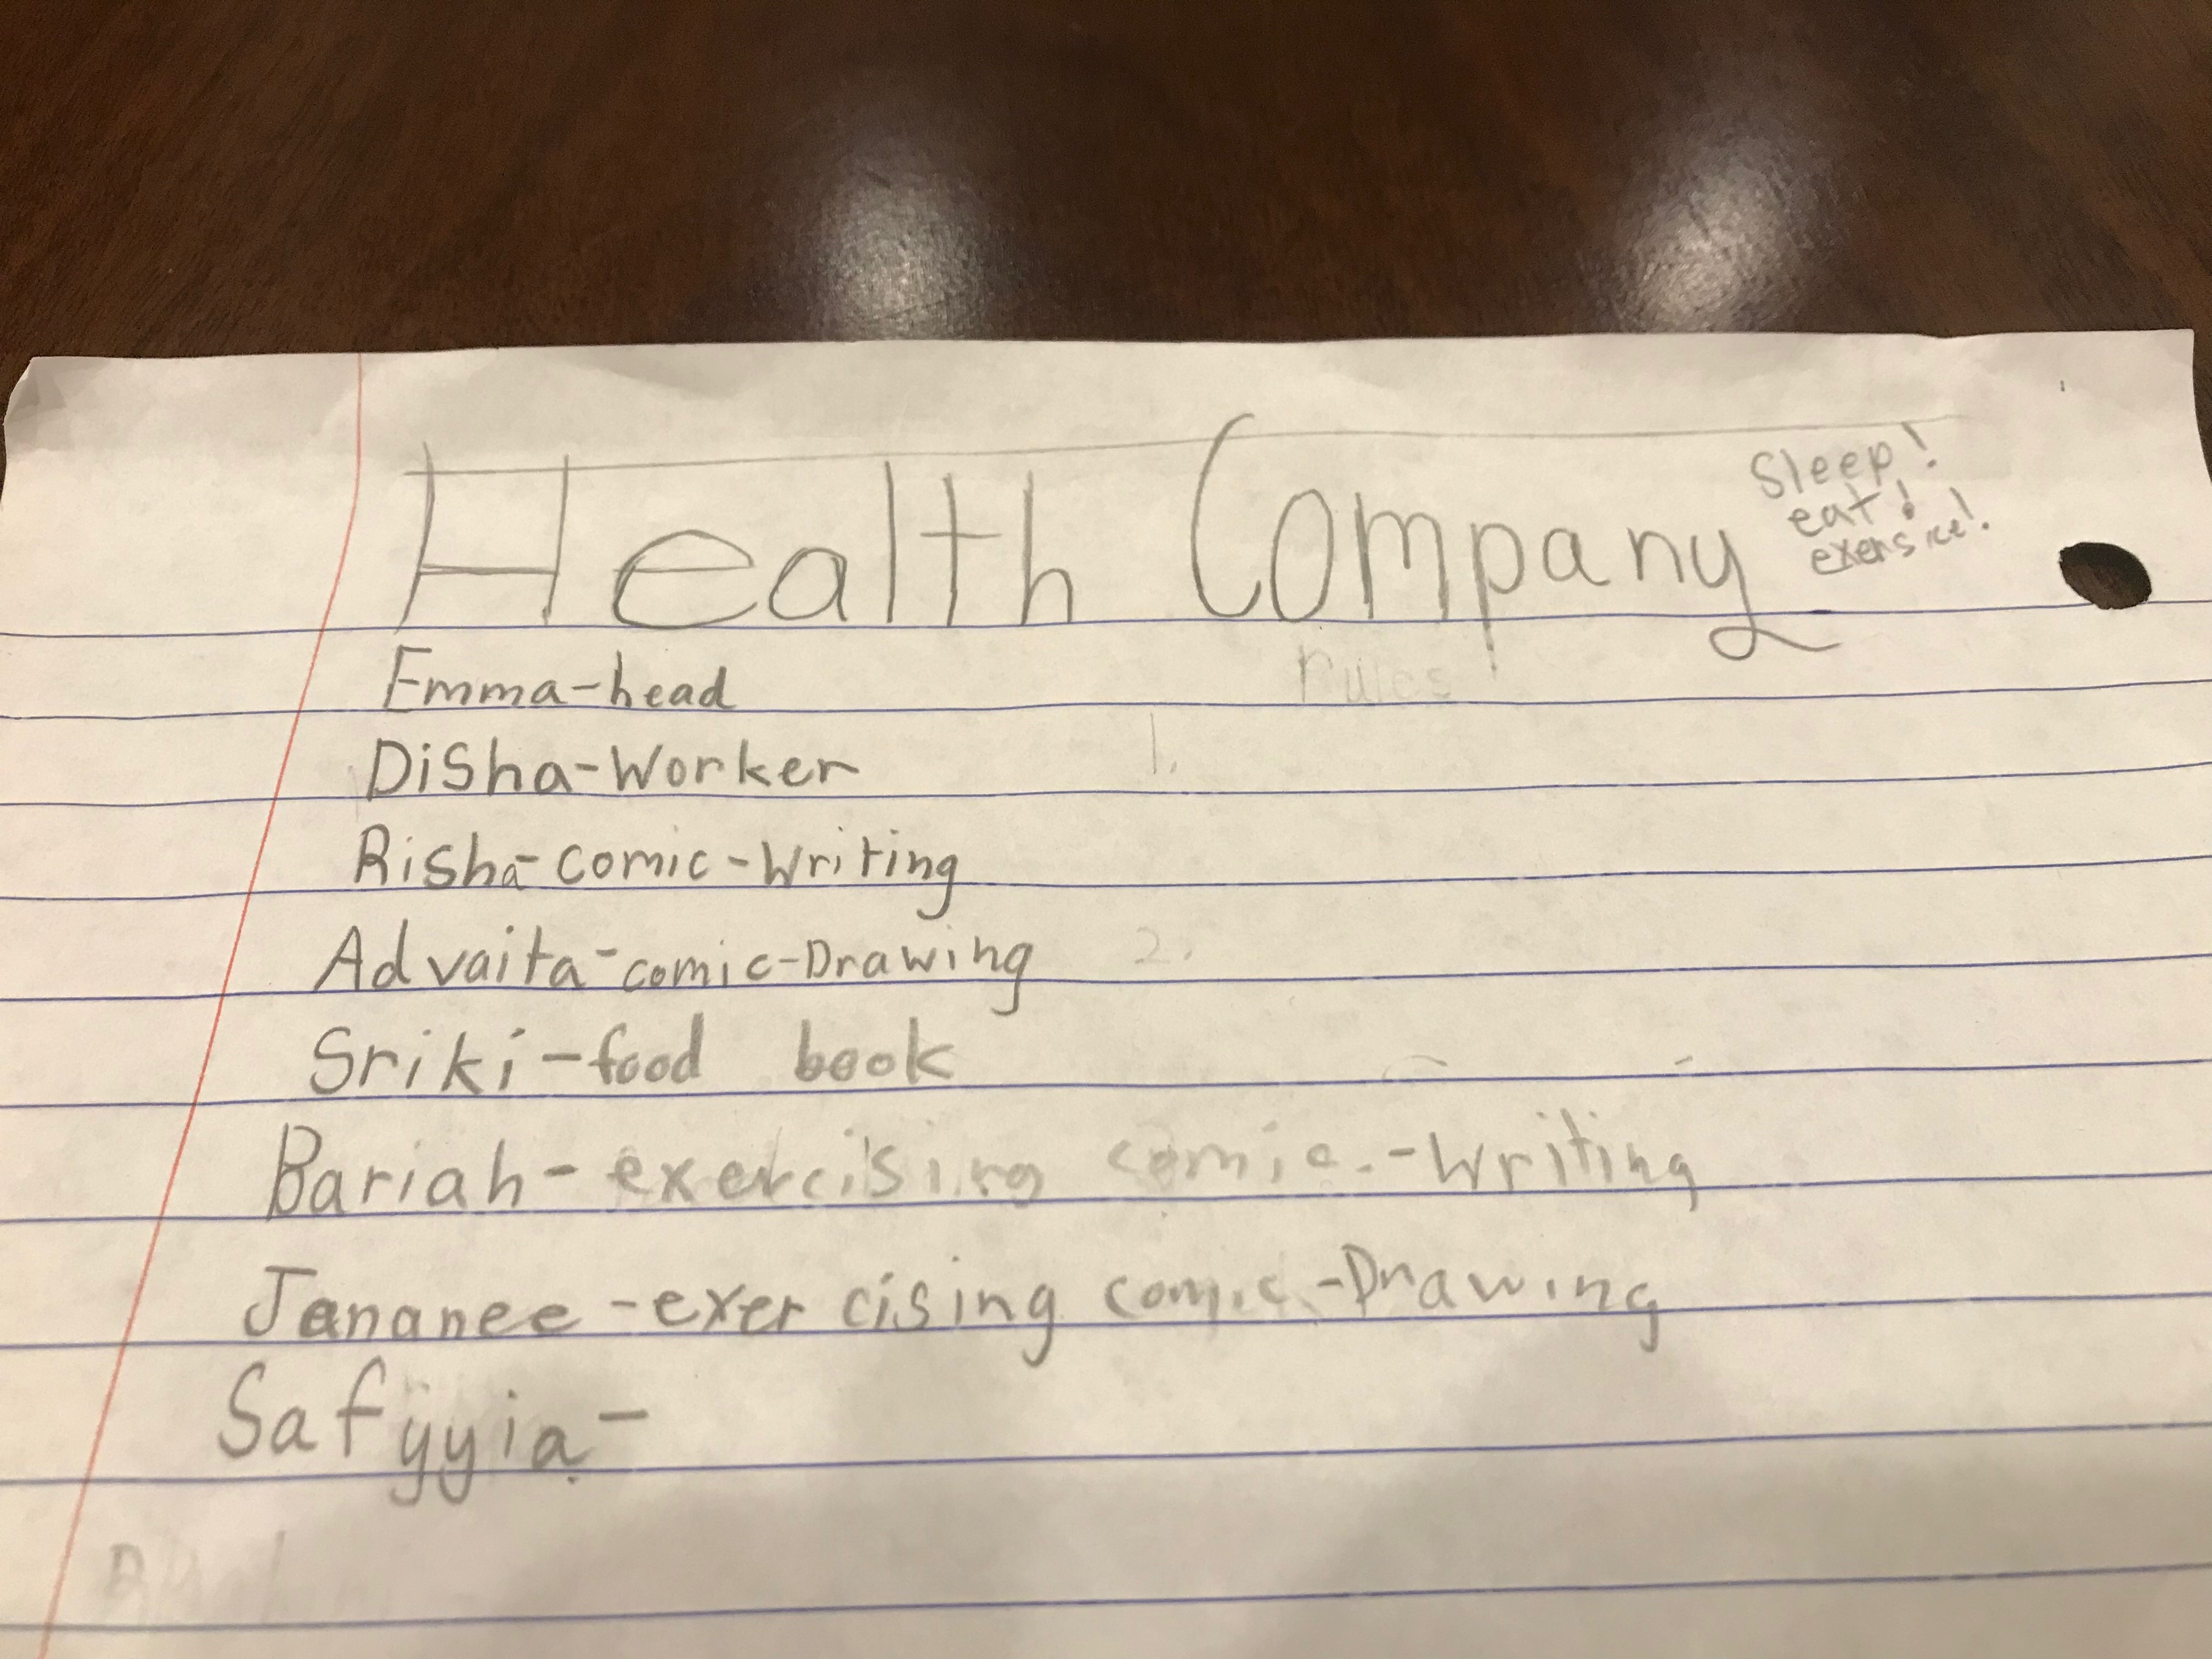 Health Company
Sleep!
eat!
exersice!
rules
Emma-head
Disha-Worker
1.
Risha-comic-Writing
Advaita-comic-Drawing
2.
Sriki-food book
Bariah-exercising comic.-Writing
Jananee-exercising comic-Drawing
Safyyia-